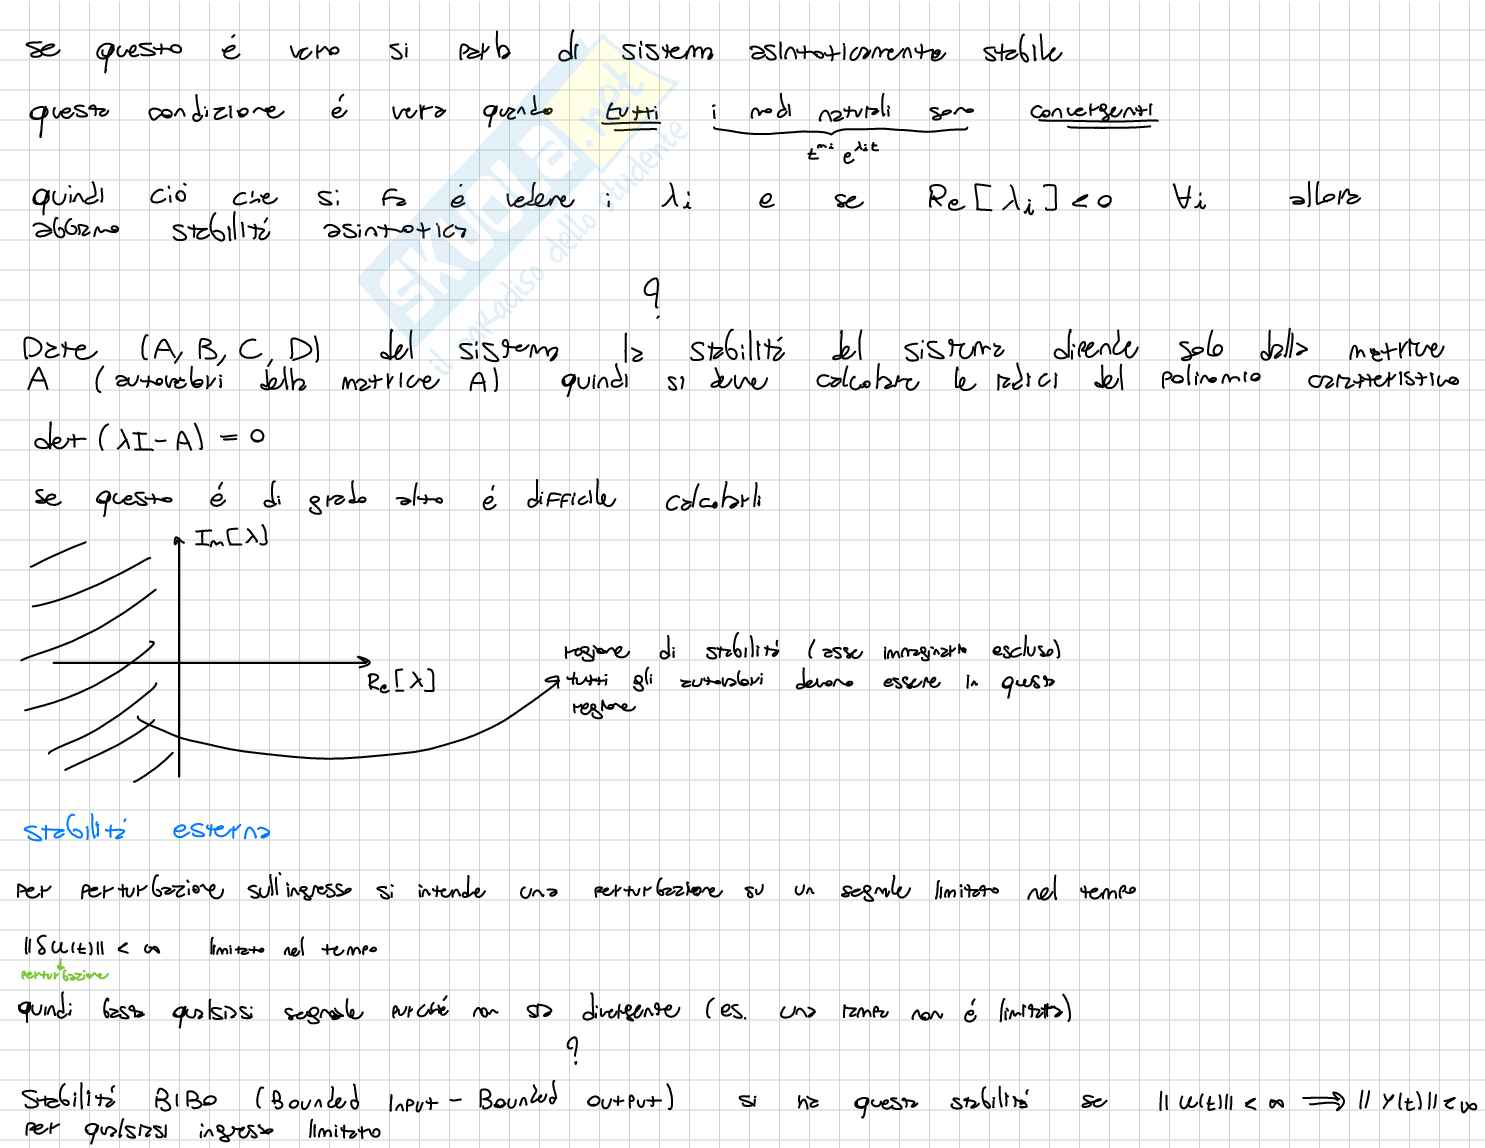 se questo é vero si parla di sistema asintoticamente stabile
questa condizione é vera quando tutti i modi naturali sono convergenti
t^mi e^λit
quindi ciò che si fa é vedere i λi e se Re[λi]<0 ∀i allora
abbiamo stabilitá asintotica
?
Date (A, B, C, D) del sistema la stabilitá del sistema dipende solo dalla matrice
A (autovalori della matrice A) quindi si deve calcolare le radici del polinomio caratteristico
det(λI-A) = 0
se questo é di grado alto é difficile calcolarli
Im[λ]
Re[λ]
regione di stabilitá (asse immaginario escluso)
tutti gli autovalori devono essere in questa
regione
stabilitá esterna
per perturbazione sull'ingresso si intende una perturbazione su un segnale limitato nel tempo
||δu(t)|| < ∞ limitato nel tempo
perturbazione
quindi basta qualsiasi segnale purché non sia divergente (es. una rampa non é limitata)
?
Stabilitá BIBO (Bounded Input - Bounded output) si ha questa stabilitá se ||u(t)|| < ∞ ⟹ ||y(t)|| < ∞
per qualsiasi ingresso limitato
SKUOLA.net
il paradiso dello studente